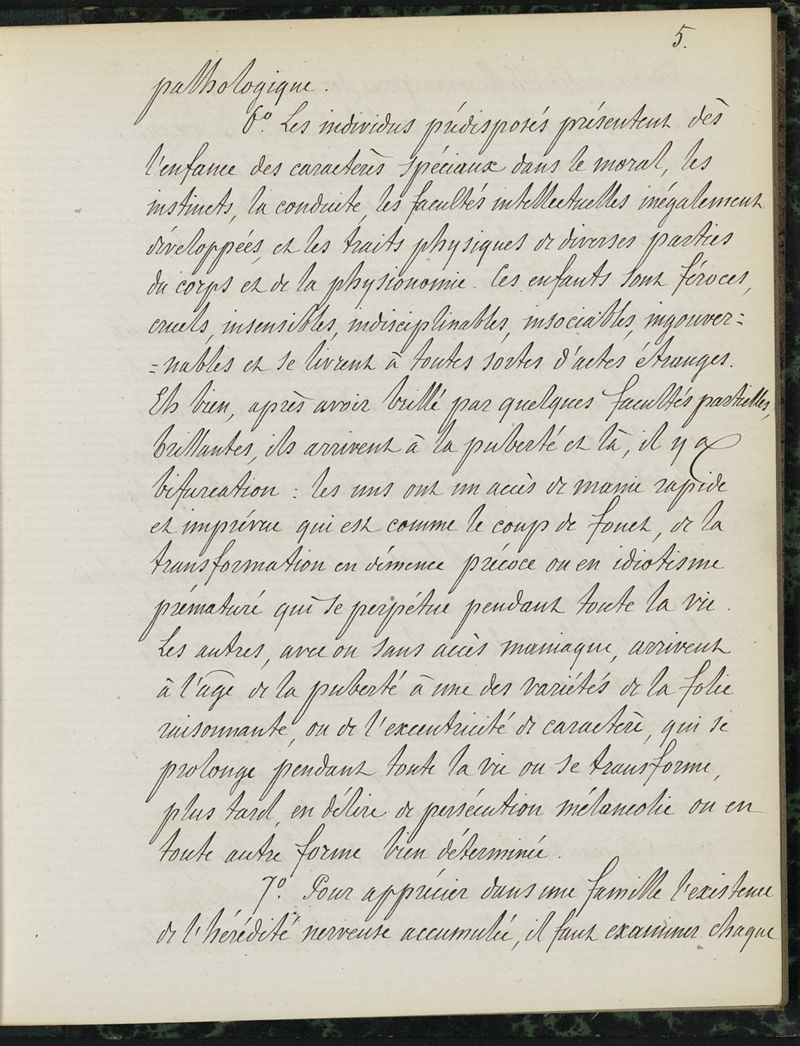 5.
pathologique.
6º. Les individus prédisposés présentent dès
l'enfance des caractères spéciaux dans le moral, les
instincts, la conduite, les facultés intellectuelles inégalement
développées, et les traits physiques de diverses parties
du corps et de la physionomie. Ces enfants sont féroces,
cruels, insensibles, indisciplinables, insociables, ingouver=
=nables et se livrent à toutes sortes d'actes étranges.
Eh bien, après avoir brillé par quelques facultés partielles,
brillantes, ils arrivent à la puberté et là, il y a
bifurcation : les uns ont un accès de manie rapide
et imprévue qui est comme le coup de fouet, de la
transformation en démence précoce ou en idiotisme
prématuré qui se perpétue pendant toute la vie.
Les autres, avec ou sans accès maniaque, arrivent
à l'âge de la puberté à une des variétés de la folie
raisonnante, ou de l'excentricité de caractère, qui se
prolonge pendant toute la vie ou se transforme,
plus tard, en délire de persécution mélancolie ou en
toute autre forme bien déterminée.
7º. Pour apprécier dans une famille l'existence
de l'hérédité nerveuse accumulée, il faut examiner chaque